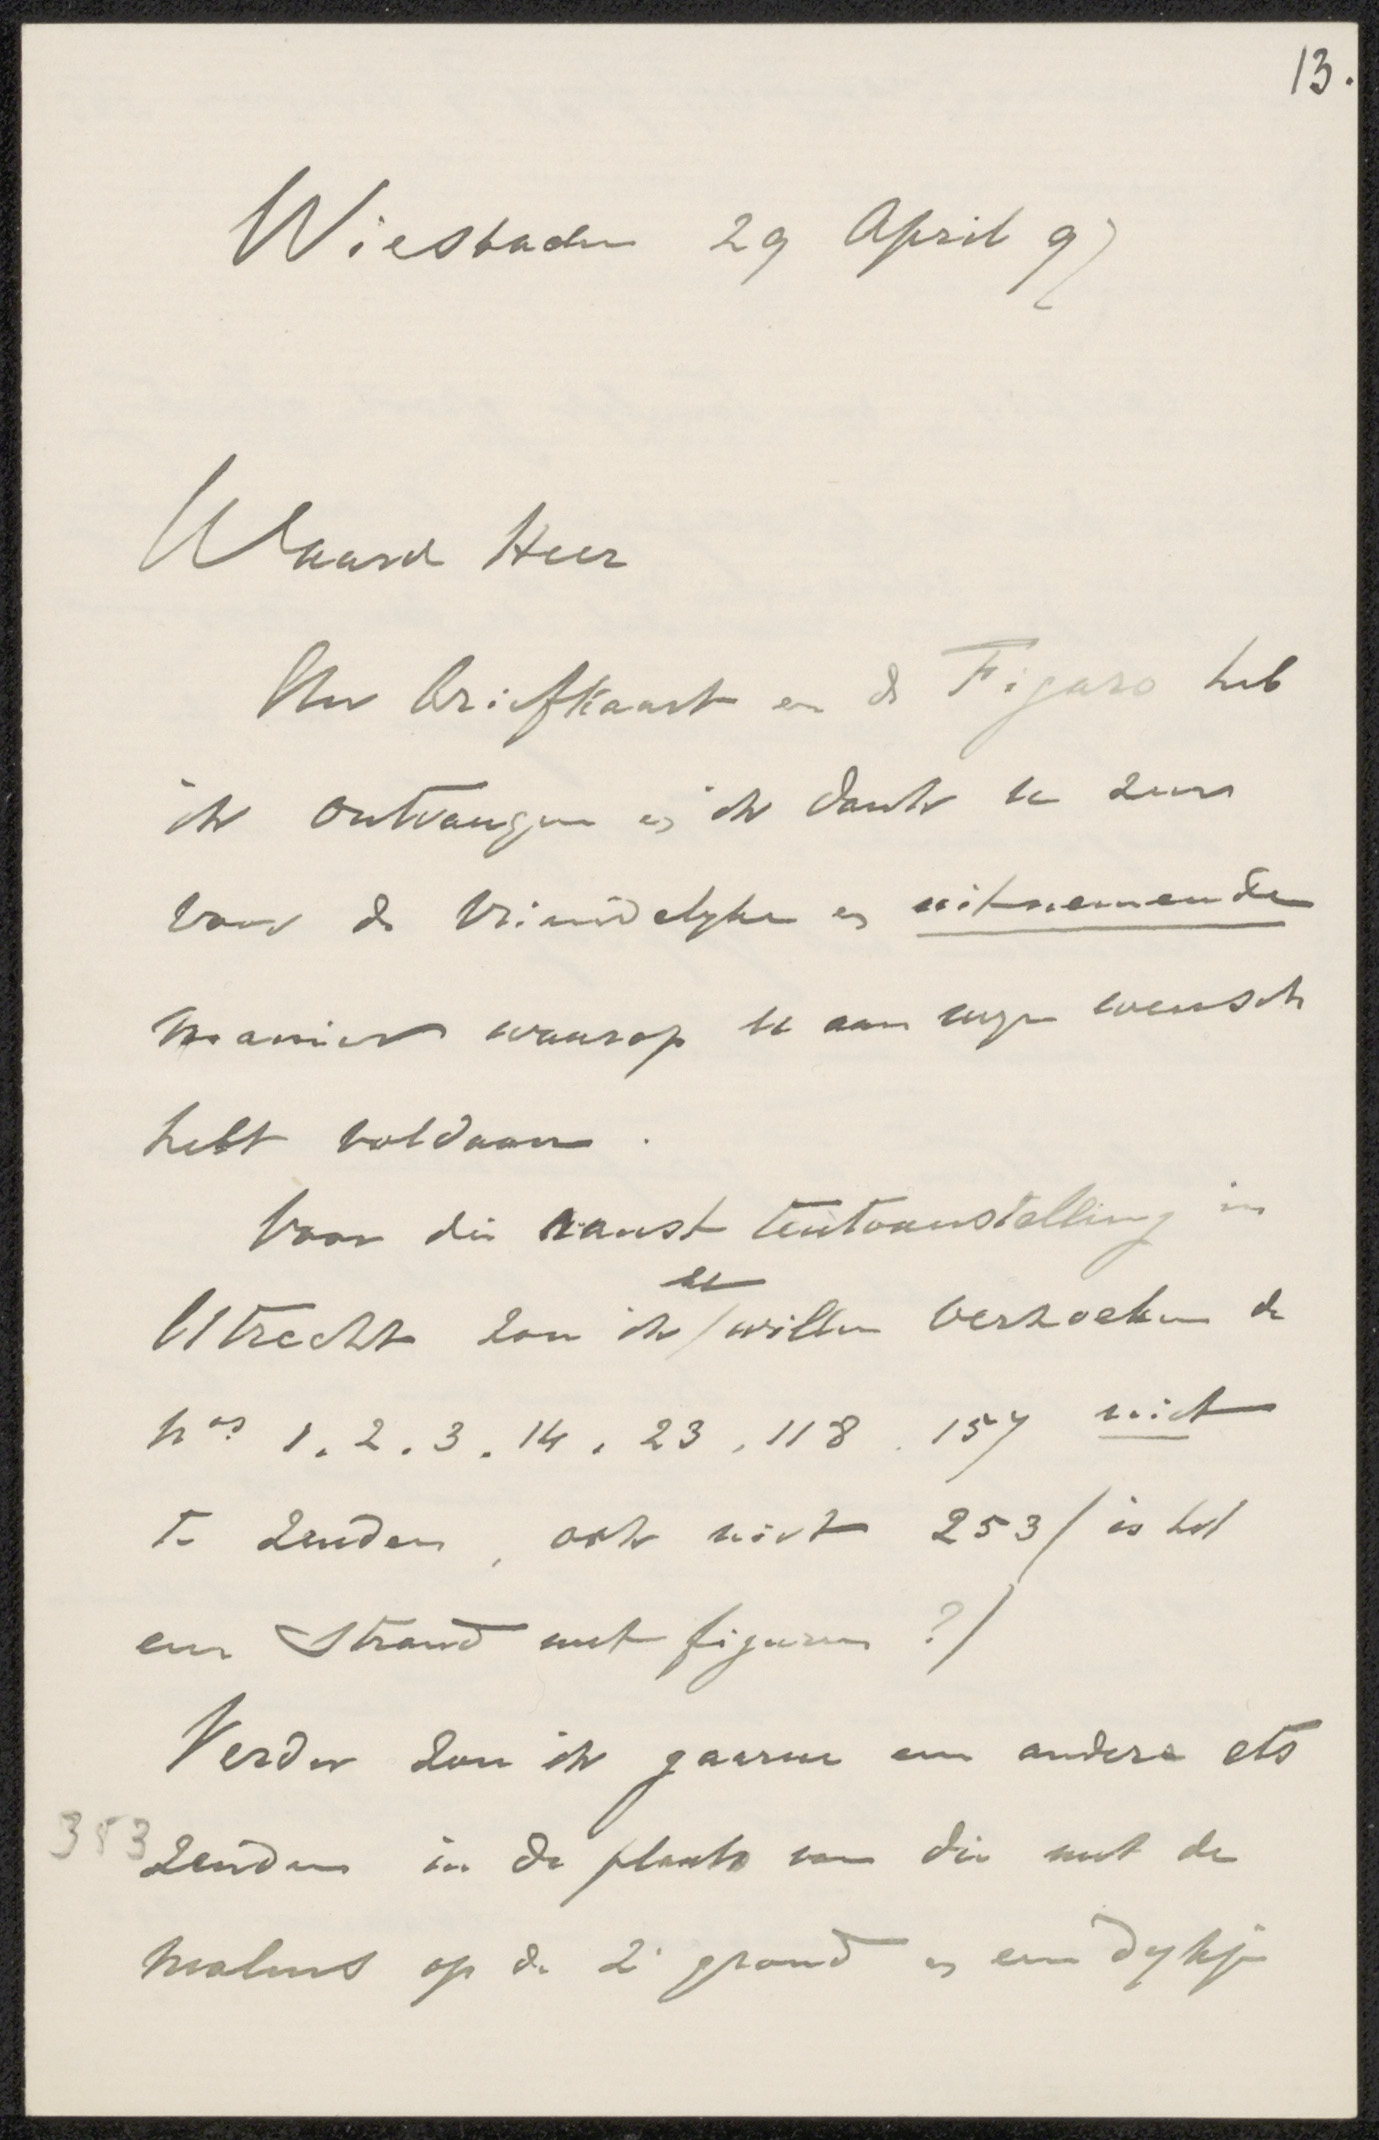 13.
Wiesbaden 29 April 97
Waarde Heer
Uw briefkaart en de Figaro heb
ik ontvangen en ik dank u zeer
voor de vriendelyke en uitnemende
manier waarop u aan myn wensch
hebt voldaan.
Voor die kunst tentoonstelling in
u
Utrecht zou ik / willen verzoeken de
nos 1. 2. 3. 14. 23. 118. 157 niet
te zenden, ook niet 253 / is het
een strand met figuren ? /
Verder zou ik gaarne een andere ets
353 zenden in de plaats van die met de
molens op de 2e grond en een dykje